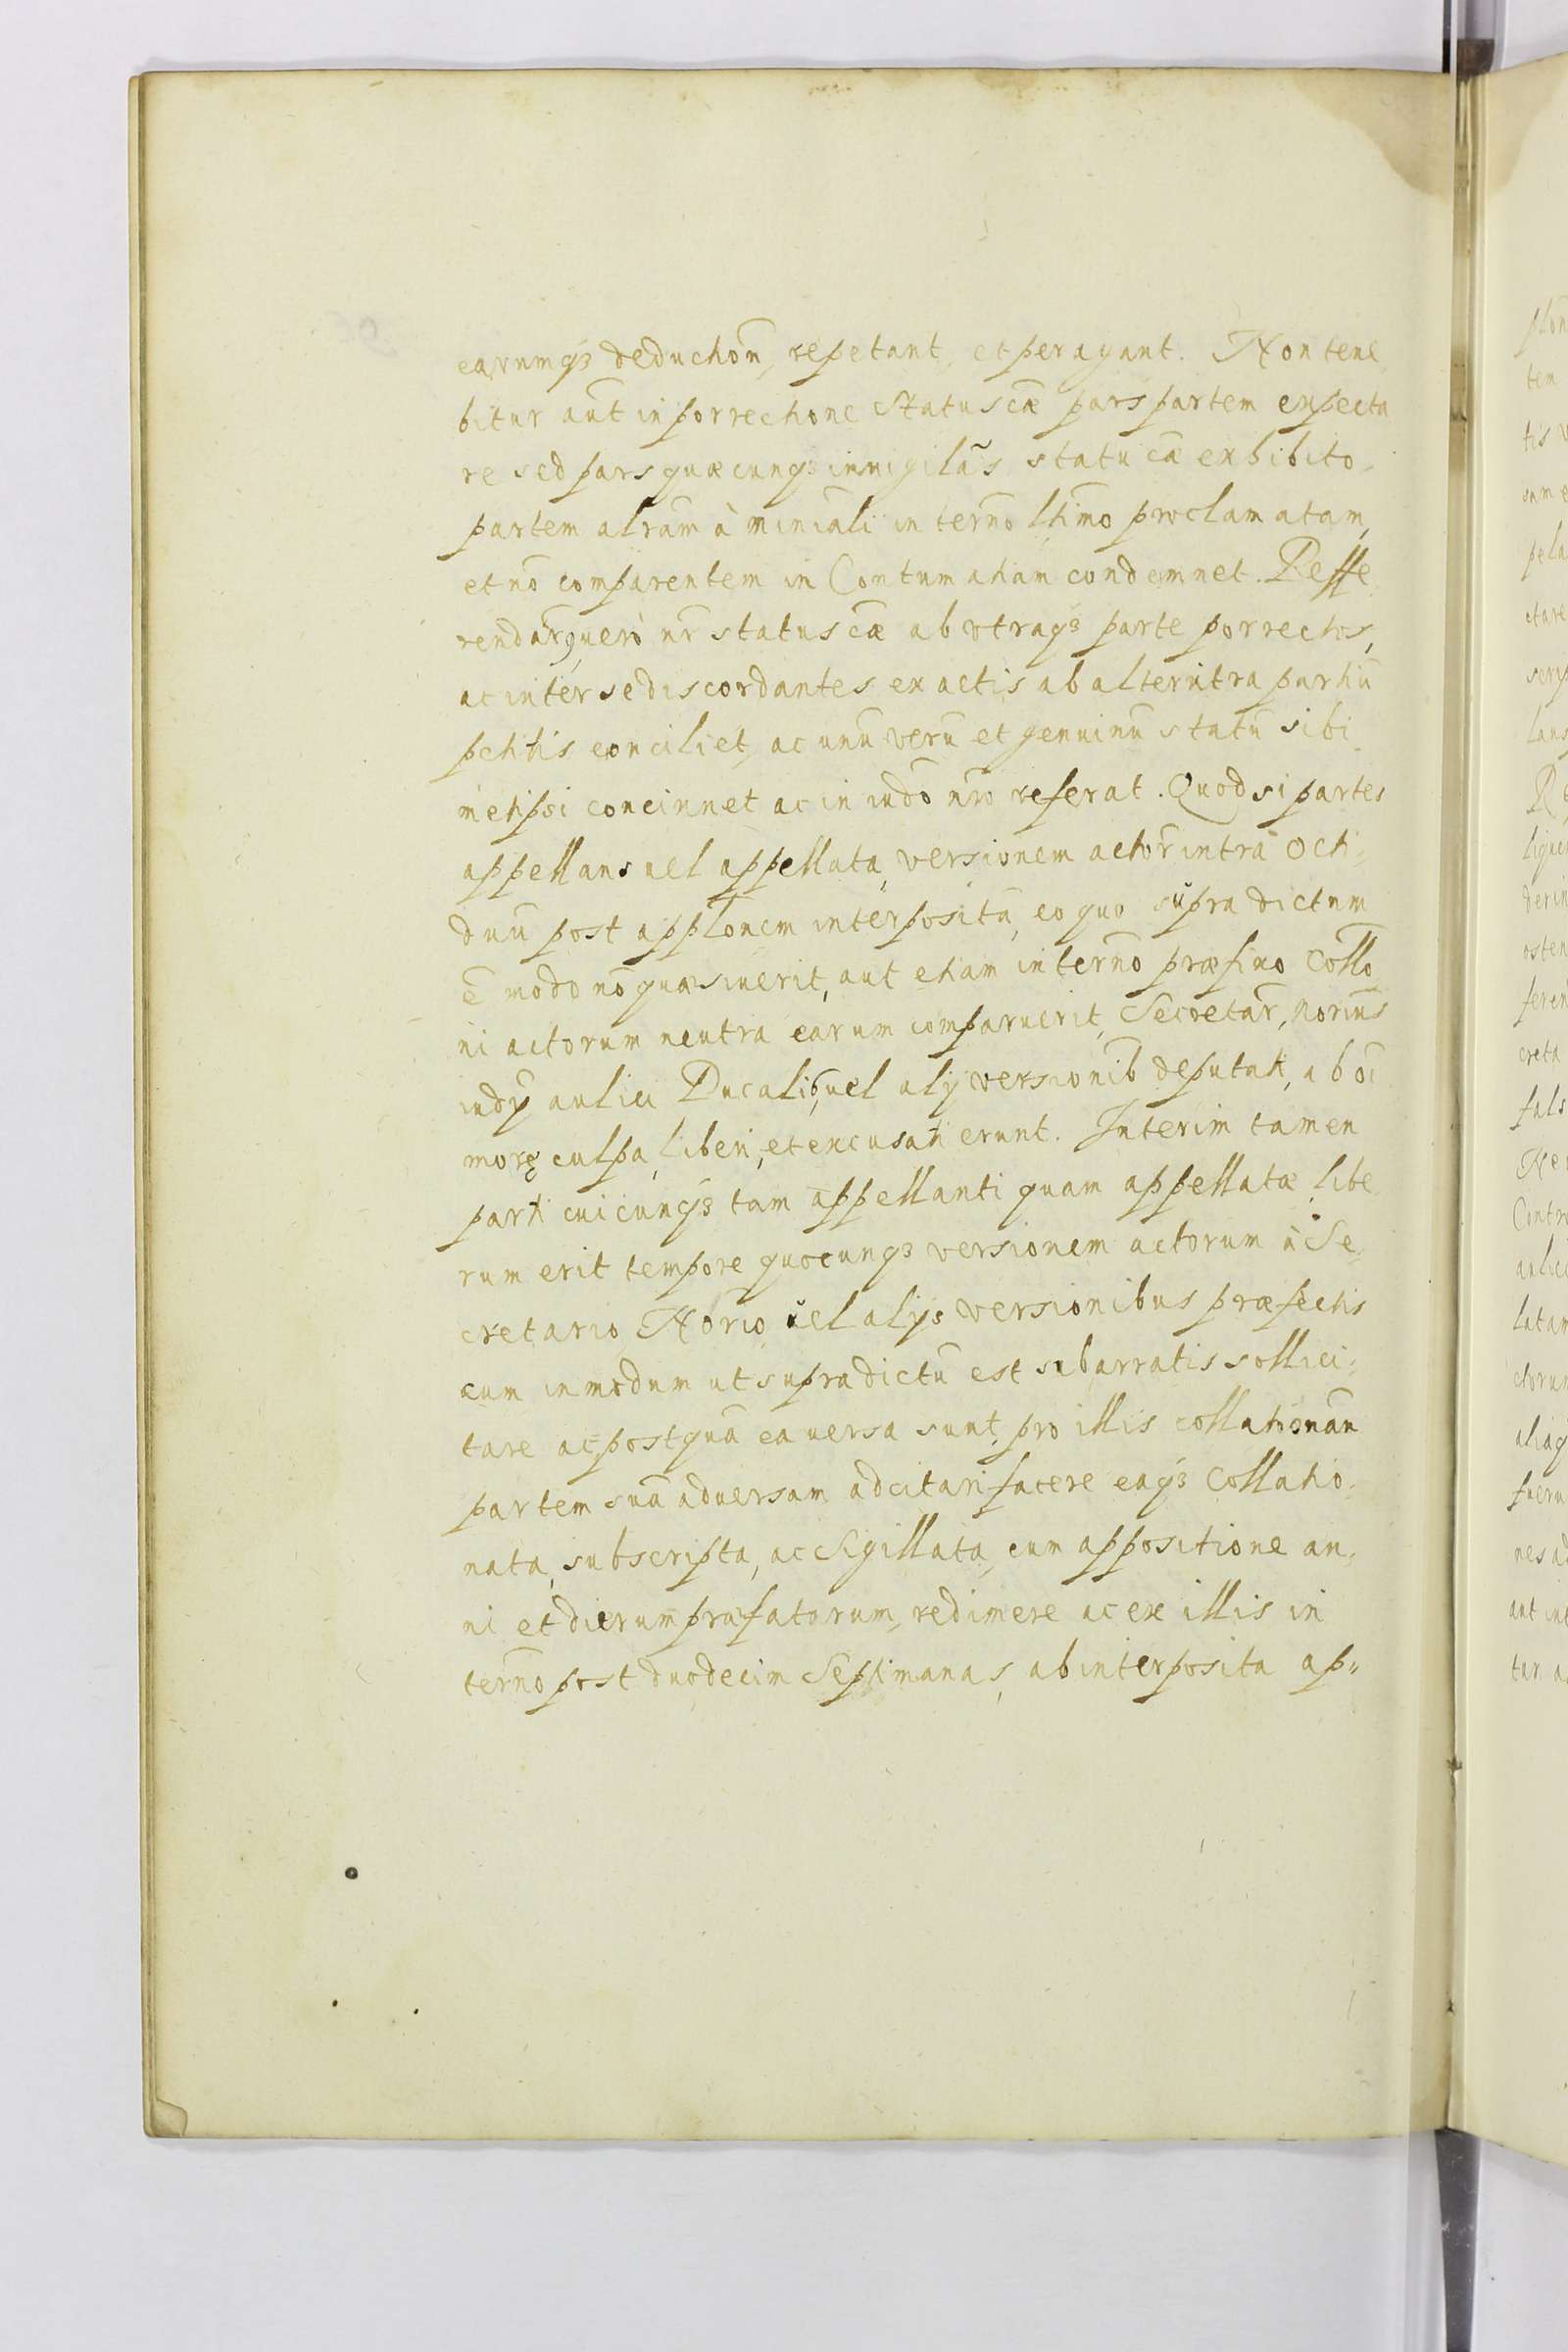 earumq₃ deductioñ, repetant, et peragant. Non tene
bitur aut̃ in porrectione Status cæ̃ pars partem expecta
re sed pars quæcunq₃ inuigilãs statu cã exhibito
partem alram̃ à miniali in termo ltimo proclamatam,
et nõ comparentem in Contumatiam condemnet. Reffe
rendar̃ uerò nr̃ status cæ̃ ab utraq₃ parte porrectos,
ac inter se discordantes ex actis ab alterutra partiũ
petitis conciliet, ac unũ verũ et genuinũ statũ sibi
metipsi concinnet ac in iudõ nrõ referat. Quod si partes
appellans uel appellata, versionem actor̃ intra octi-
duũ post applonem interpositã, eo quo supra dictum
ẽ modo nõ quæsiuerit, aut etiam in termo præfixo Collo
ni actorum neutra earum comparuerit, Secretar̃, Norius
iudy aulici Ducalis, uel alij versionib deputati, ab oi
moræ culpa, liberi, et excusati erunt. Interim tamen
parti cuicunq₃ tam appellanti quam appellatæ libe
rum erit tempore quocunq₃ versionem actorum à Se-
cretario Norio uel alijs versionibus præfectis
cum in modum ut supradictũ est subarratis sollici-
tare ac postquã ea uersa sunt, pro illis collationan
partem suã aduersam adcitari facere eaq₃ Collatio-
nata, subscripta, ac Sigillata, cum appositione an-
ni et dierum præfatorum, redimere ac ex illis in
termo post duodecim Septimanas, ab interposita ap-